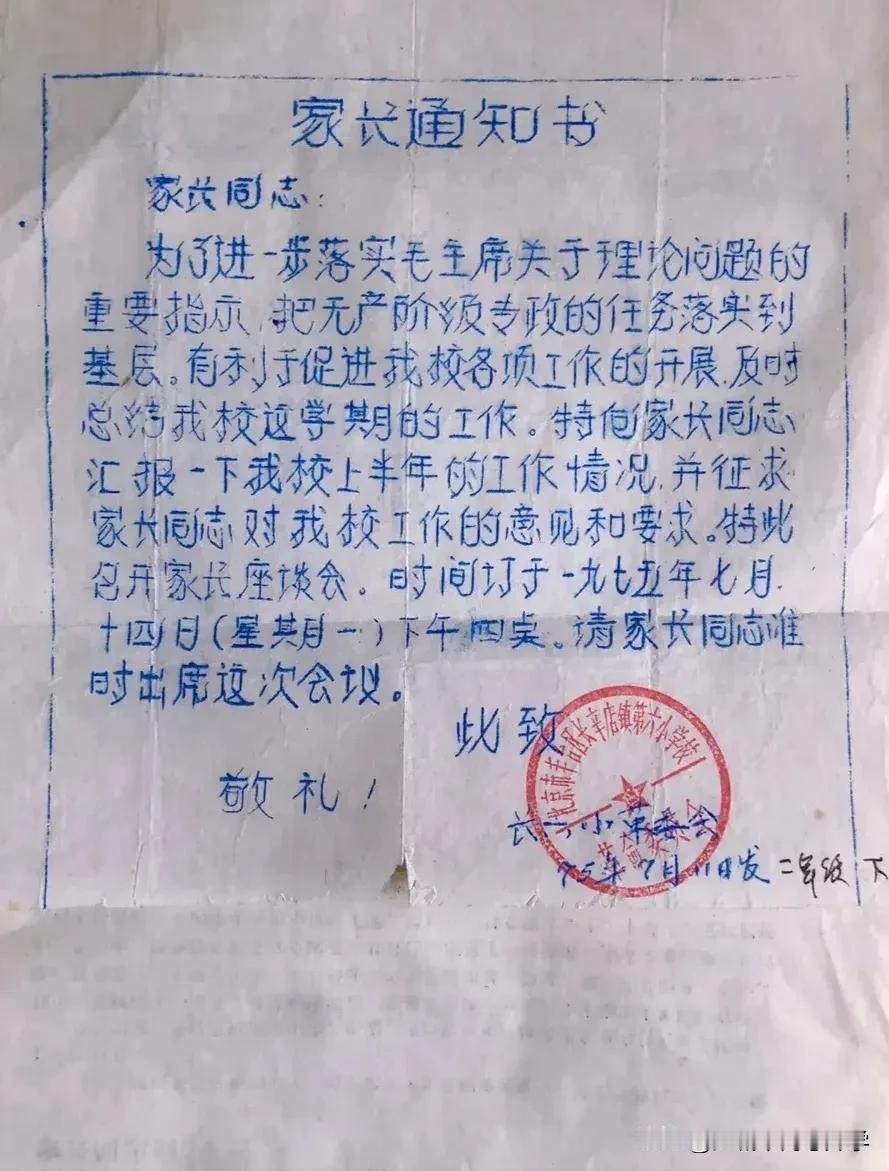 家长通知书
家长同志:
为了进一步落实毛主席关于理论问题的
重要指示,把无产阶级专政的任务落实到
基层。有利于促进我校各项工作的开展,及时
总结我校这学期的工作。特向家长同志
汇报一下我校上半年的工作情况,并征求
家长同志对我校工作的意见和要求。特此
召开家长座谈会。时间订于一九七五年七月
十四日(星期一)下午四点。请家长同志准
时出席这次会议。
此致
敬礼!
北京市丰台区长辛店镇第六小学校
革命委员会
长六小革委会
75年7月11日发 二年级 下